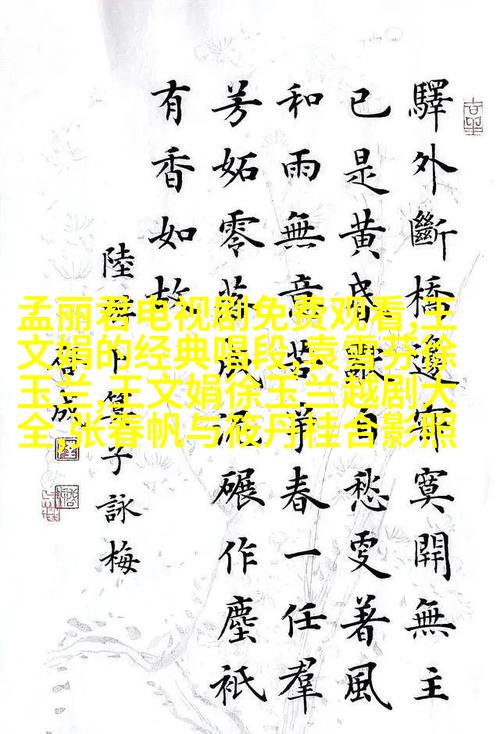 驛外斷橋邊寂寞開無主
已是黃昏獨自愁更著風
和雨無意苦爭春一任羣
芳妬零落成泥碾作塵衹
有香如故
陸游卜算子詠梅
孟丽君电视剧免费观看,王
文娟的经典唱段,袁雪芬徐
玉兰,王文娟徐玉兰越剧大
全,张春帆与筱丹桂合影照